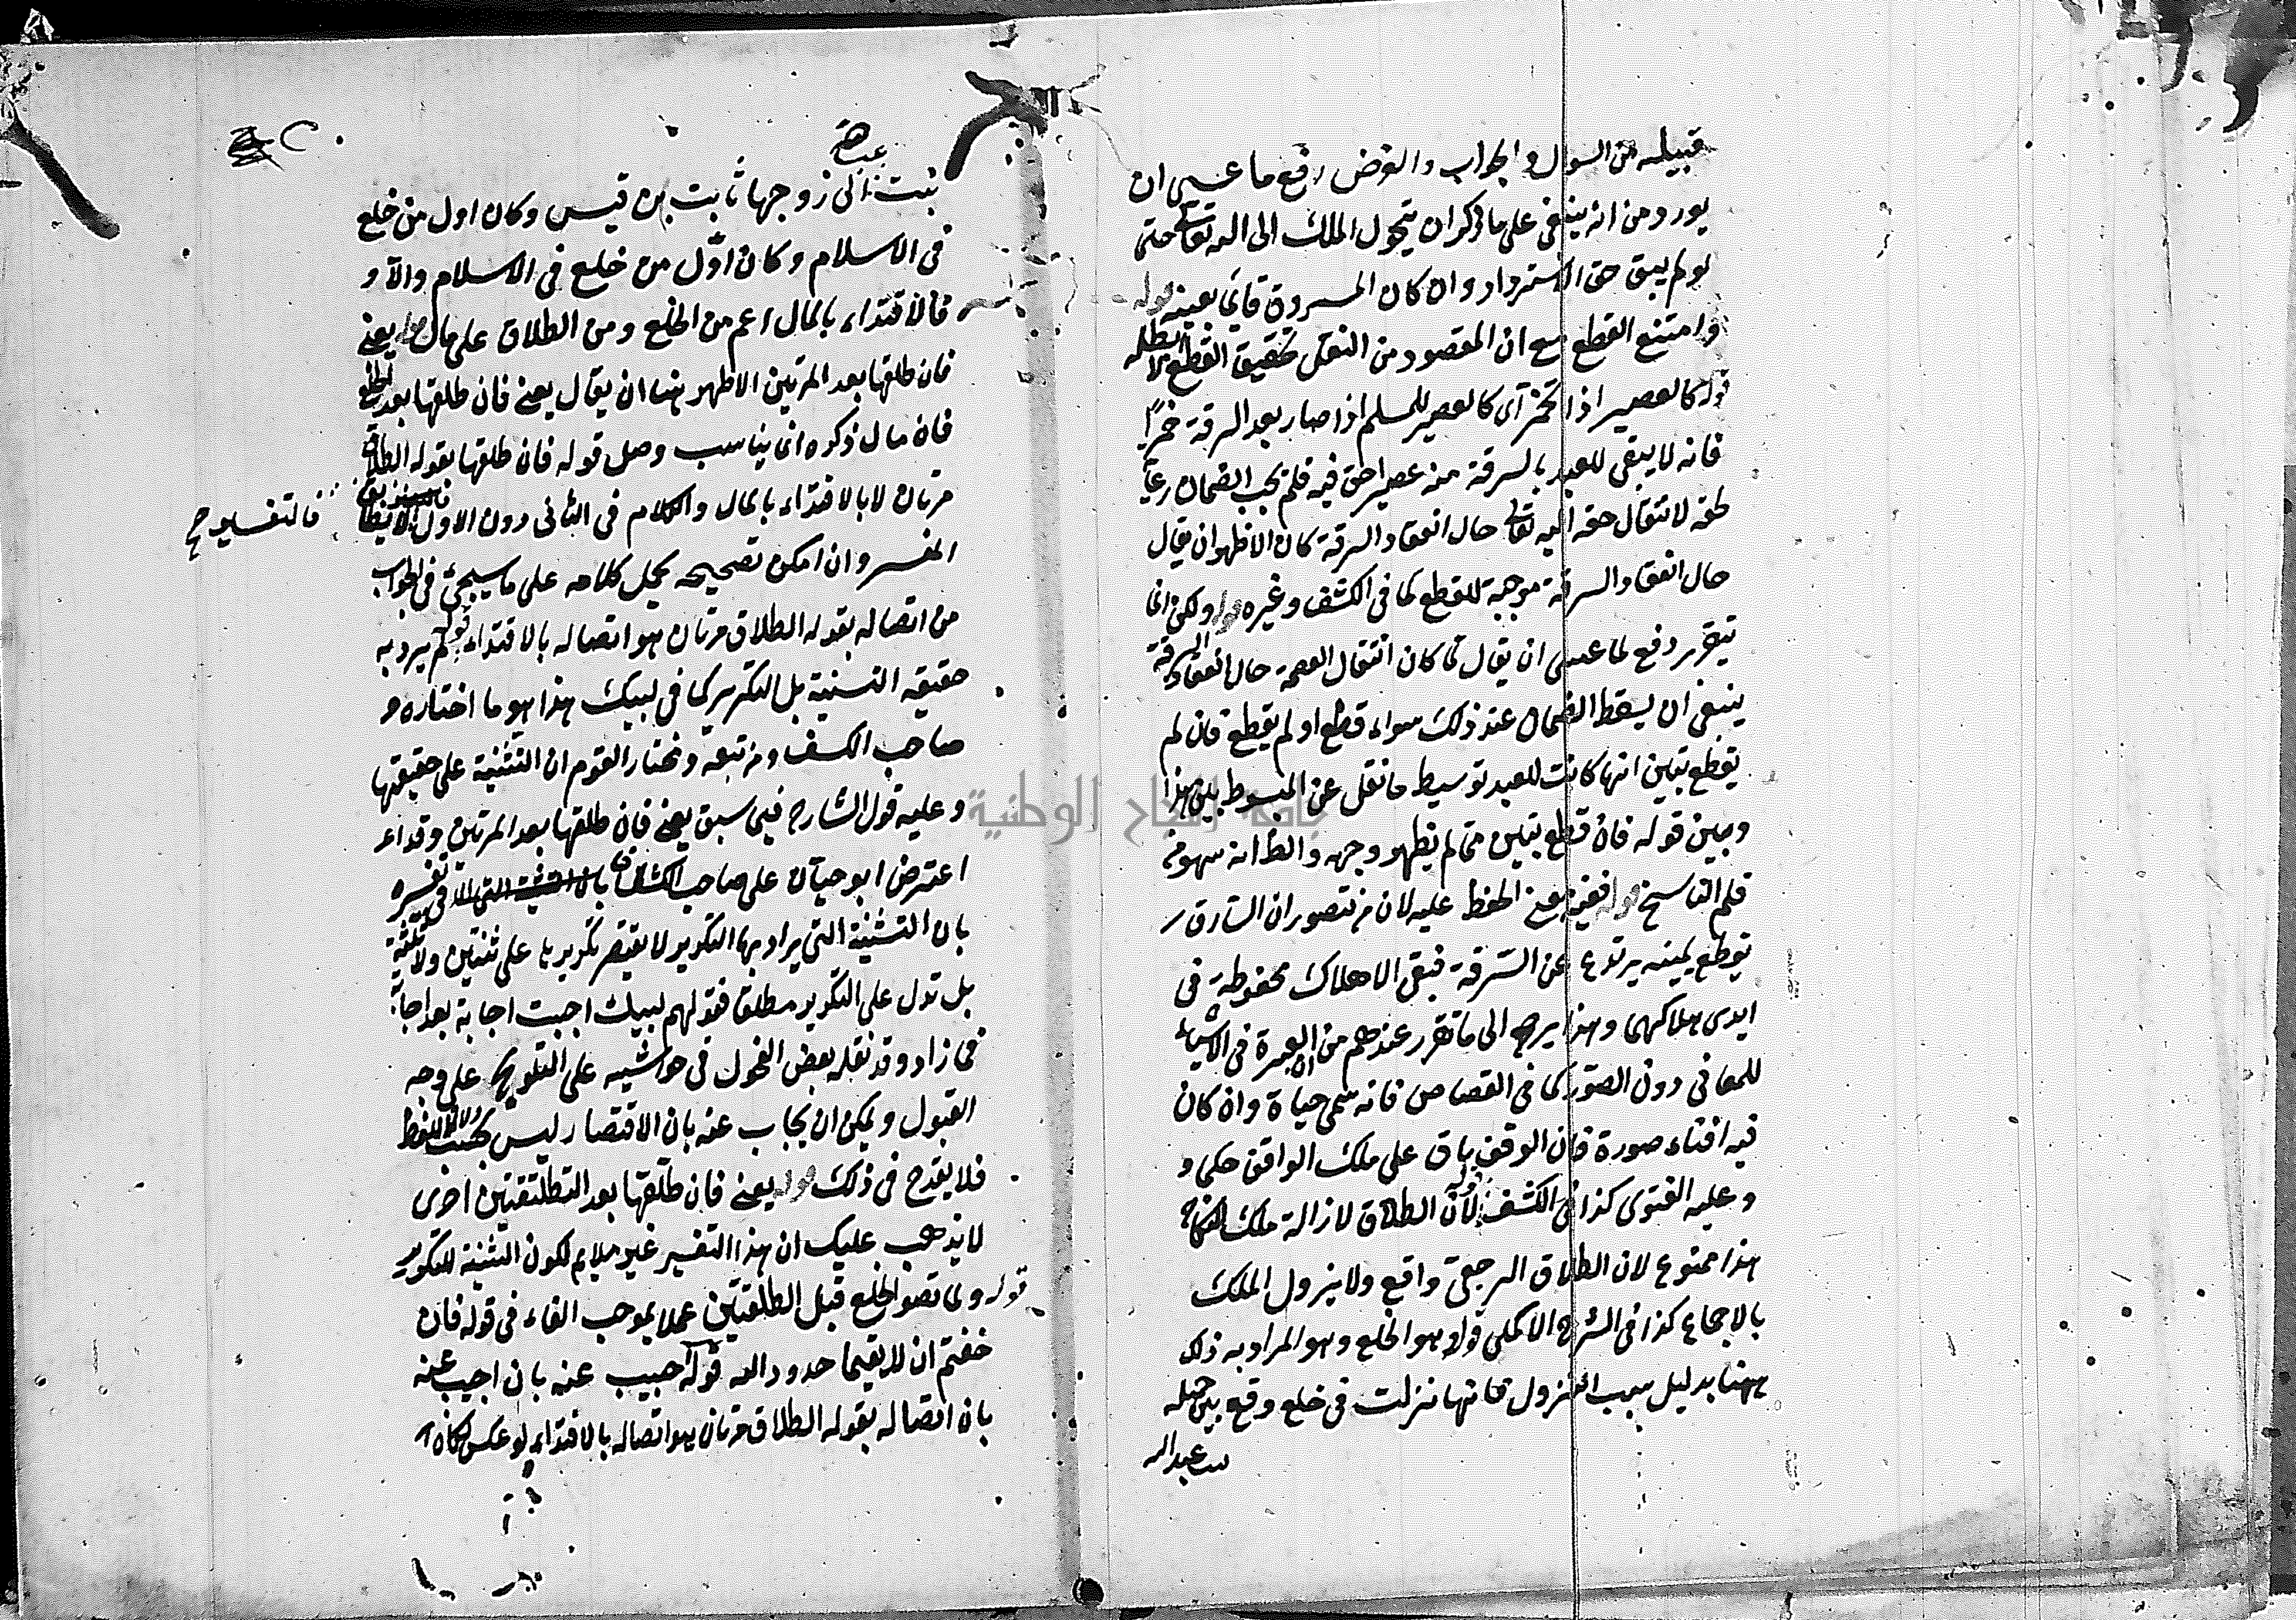 قبيله من السوال والجواب والغرض رفع ما عسى ان
يورد من انه ينبغي على ما ذكر ان يتحول الملك الى الله تعالى حتى
لو لم يبق حق الاسترداد وان كان المسروق قائما بعينه قوله
وامتنع القطع مع ان المقصود من النقل تحقيق القطع لا ابطاله
قوله كالعصير اذا تخمر اى كالعصير للمسلم اذا صار بعد السرقة خمرًا
فانه لا يبقى للعبد بالسرقة منه عصيرا حق فيه فلم يجب الضمان رعاية
لحقه لانتقال حقه اليه تعالى حال انعقاد السرقة كان الاظهر ان يقال
حال انعقاد السرقة موجبة للقطع كما في الكشف وغيره قوله ولكن انما
يتقرر دفع لما عسى ان يقال لما كان انتقال العصمة حال انعقاد السرقة
ينبغي ان يسقط الضمان عند ذلك سواء قطع او لم يقطع فان لم
يقطع تبين انها كانت للعبد توسيط ما نقل عن المبسوط بين هذا
وبين قوله فان قطع تبين مما لم يظهر وجهه والظ انه سهو من
قلم الناسخ قوله ففيه معنى الحفظ عليه لان من تصور ان السارق
يقطع يمينه يرتدع عن السرقة فتبقى الاملاك محفوظة في
ايدى ملاكها وهذا يرجع الى ما تقرر عندهم من ان العبرة في الاشياء
للمعاني دون الصور كما في القصاص فانه سمى حياة وان كان
فيه افناء صورة فان الوقف باق على ملك الواقف حكما و
وعليه الفتوى كذا في الكشف قوله لان الطلاق لازالة ملك النكاح
هذا ممنوع لان الطلاق الرجعي واقع ولا يزول الملك
بالاجماع كذا في الشرح الاكملي قوله وهو الخلع وهو المراد به ذلك
ههنا بدليل سبب النزول فانها نزلت في خلع وقع بين جميلة
بنت عبدالله
بنت ابى زوجها ثابت بن قيس وكان اول من خلع
في الاسلام وكان اوّل من خلع في الاسلام والا
فالافتداء بالمال اعم من الخلع ومن الطلاق على مال قوله يعني
فان طلقها بعد المرتين الاظهر هنا ان يقال يعني فان طلقها بعد الخلع
فان ما ذكره انما يناسب وصل قوله فان طلقها بقوله الطلاق
مرتان لا بالافتداء بالمال والكلام في الثاني دون الاول
فالتفسير ح
المفسر وان امكن تصحيحه بحمل كلامه على ما سيجئ في الجواب
من اتصاله بقوله الطلاق مرتان هو اتصاله بالافتداء قوله لم يرد به
حقيقة التثنية بل التكرير كما في لبيك هذا هو ما اختاره
صاحب الكشف ومن تبعه ومختار القوم ان التثنية على حقيقتها
وعليه قول الشارح فيما سبق يعني فان طلقها بعد المرتين وقد
اعترض ابو حيان على صاحب الكشاف في تفسيره
بان التثنية التي يراد بها التكرير لا يقتصر تكريرها على ثنتين ولا ثلثة
بل تدل على التكرير مطلقا فقولهم لبيك اجبت اجابة بعد اجابة
فما زاد وقد نقله بعض الفحول في حواشيه على التلويح على وجه
القبول ويمكن ان يجاب عنه بان الاقتصار ليس بحسب دلالة اللفظ
فلا يقدح في ذلك قوله يعني فان طلقها بعد التطليقتين اخرى
لا يذهب عليك ان هذا التفسير غير ملايم لكون التثنية للتكرير
قوله ولا تصور الخلع قبل الطلقتين عملا بموجب الفاء في قوله فان
خفتم ان لا يقيما حدود الله قوله اجيب عنه بان اجيب عنه
بان اتصاله بقوله الطلاق مرتان هو اتصاله بالافتداء لو عكس لكان
جامعة النجاح الوطنية